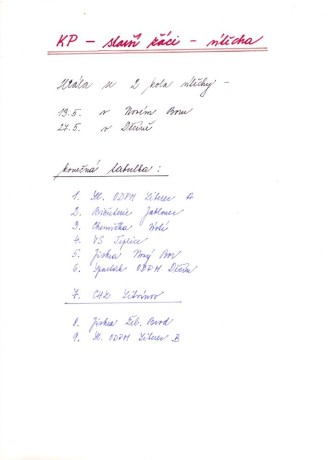 KP – starší žáci – střecha
Hrála se 2 kola střechy –
19.5. v Novém Boru
27.5. v Děčíně
konečná tabulka:
1. Sl. ODPM Liberec A
2. Bižuterie Jablonec
3. Chemička Ústí
4. VS Teplice
5. Jiskra Nový Bor
6. Spartak ODPM Děčín
7. CHZ Litvínov
8. Jiskra Žel. Brod
9. Sl. ODPM Liberec B